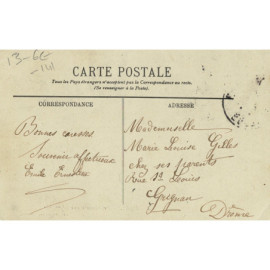 13-6E
CARTE POSTALE
Tous les Pays étrangers n'acceptent pas la Correspondance au recto.
(Se renseigner à la Poste).
CORRESPONDANCE
Bonnes
Souvenir affectueux
Emile
ADRESSE
Mademoiselle
Marie Louise Gilles
chez ses parents
Rue St Louis
Grignan
Drôme